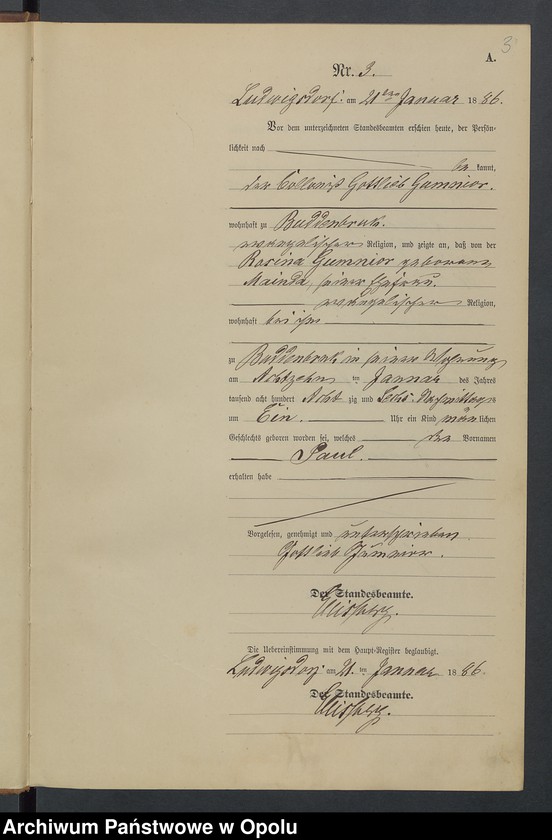 3
A.
Nr. 3.
Ludwigsdorf am 21ten Januar 1886.
Vor dem unterzeichneten Standesbeamten erschien heute, der Persön-
lichkeit nach
be kannt,
der Collonist Gottlieb Gumnior.
wohnhaft zu Buddenbrock.
evangelischer Religion, und zeigte an, daß von der
Rosina Gumnior geborene
Mainda, seiner Ehefrau.
evangelischer Religion,
wohnhaft bei ihm
zu Buddenbrock in seiner Wohnung
am Achtzehn ten Januar des Jahres
tausend acht hundert Acht zig und Sechs Nachmittags
um Ein. Uhr ein Kind männlichen
Geschlechts geboren worden sei, welches den Vornamen
Paul.
erhalten habe
Vorgelesen, genehmigt und unterschrieben
Gottlieb Gumnior.
Der Standesbeamte.
Die Uebereinstimmung mit dem Haupt-Register beglaubigt.
Ludwigsdorf am 21. ten Januar 1886.
Der Standesbeamte.
Archiwum Państwowe w Opolu